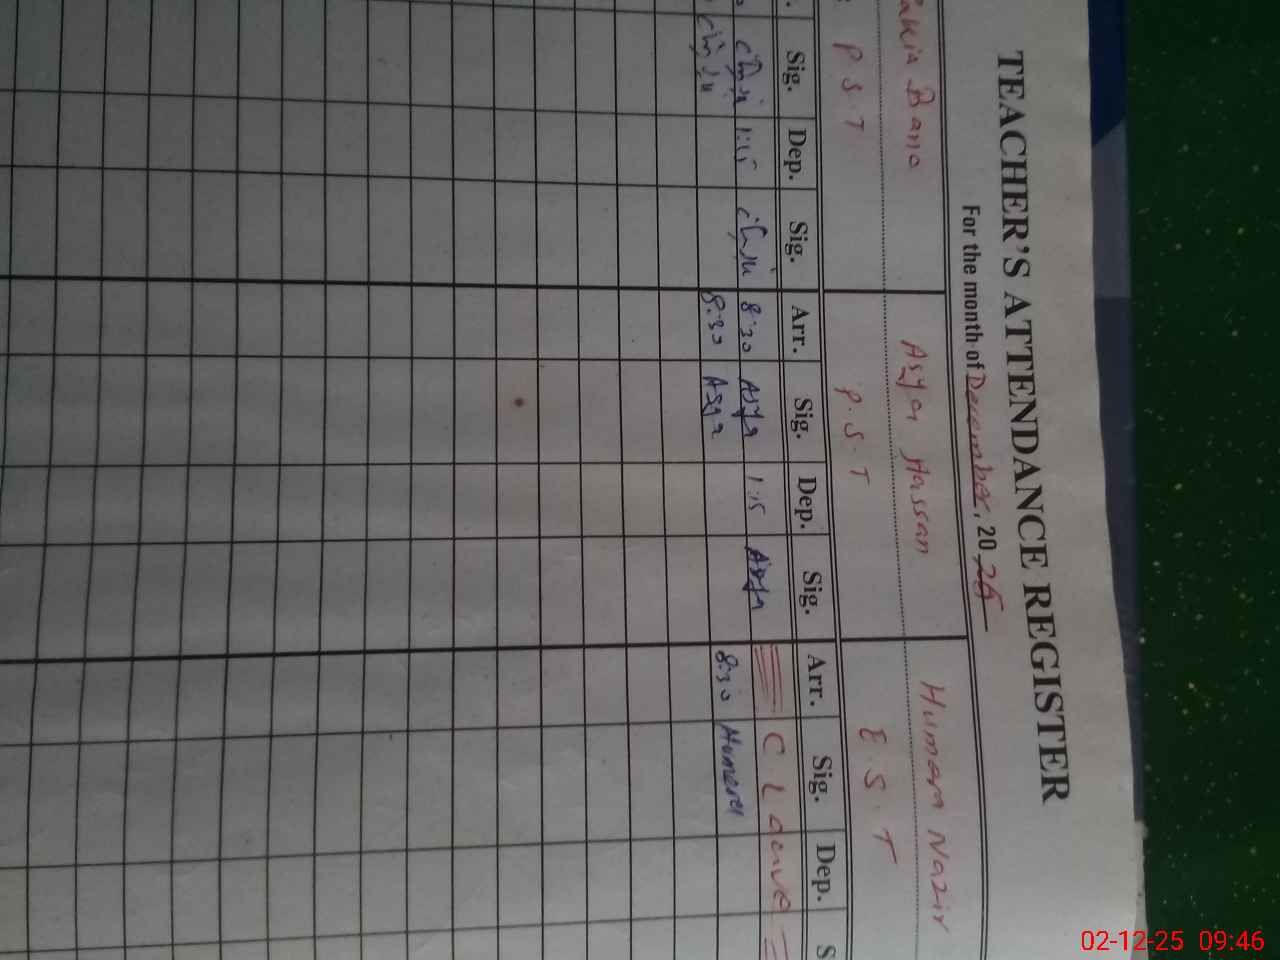 TEACHER'S ATTENDANCE REGISTER
For the month of December, 2025
Bano Asya Hassan Humera Nazir
P.S.T P.S.T E.S.T
Sig. Dep. Sig. Arr. Sig. Dep. Sig. Arr. Sig. Dep. S
1:15 8:30 Asya 1:15 Asya C Leave
8:30 Asya 8:30 Humera
02-12-25 09:46